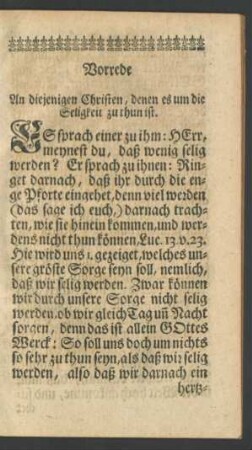 Vorrede
An diejenigen Christen, denen es um die
Seligkeit zu thun ist.
ES sprach einer zu ihm: HErr,
meynest du, daß wenig selig
werden? Er sprach zu ihnen: Rin-
get darnach, daß ihr durch die en-
ge Pforte eingehet, denn viel werden
(das sage ich euch,) darnach trach-
ten, wie sie hinein kommen, und wer-
dens nicht thun können, Luc. 13. v. 23.
Hie wird uns 1. gezeiget, welches un-
sere gröste Sorge seyn soll, nemlich,
daß wir selig werden. Zwar können
wir durch unsere Sorge nicht selig
werden, ob wir gleich Tag uñ Nacht
sorgen, denn das ist allein GOttes
Werck: So soll uns doch um nichts
so sehr zu thun seyn, als daß wir selig
werden, also daß wir darnach ein
hertz-